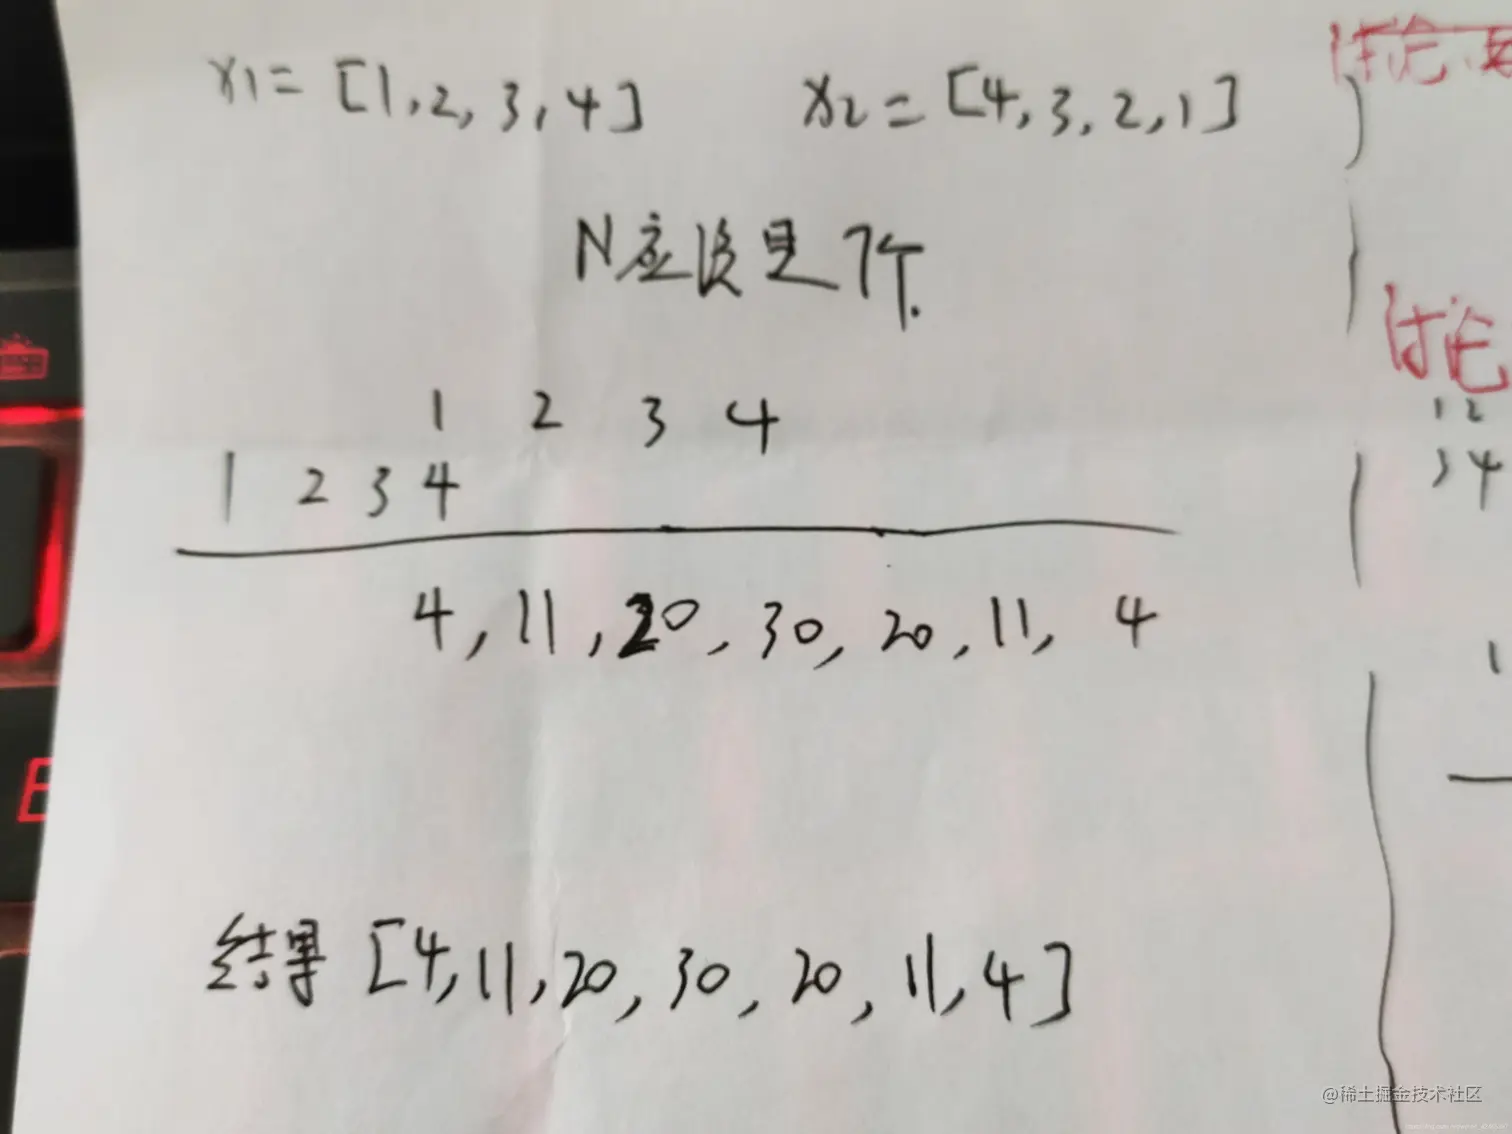 x1 = [1, 2, 3, 4] x2 = [4, 3, 2, 1]
N应该是7个.
1 2 3 4
1 2 3 4
4, 11, 20, 30, 20, 11, 4
结果 [4, 11, 20, 30, 20, 11, 4]
讨论
讨论
1 2
3 4
1
@稀土掘金技术社区